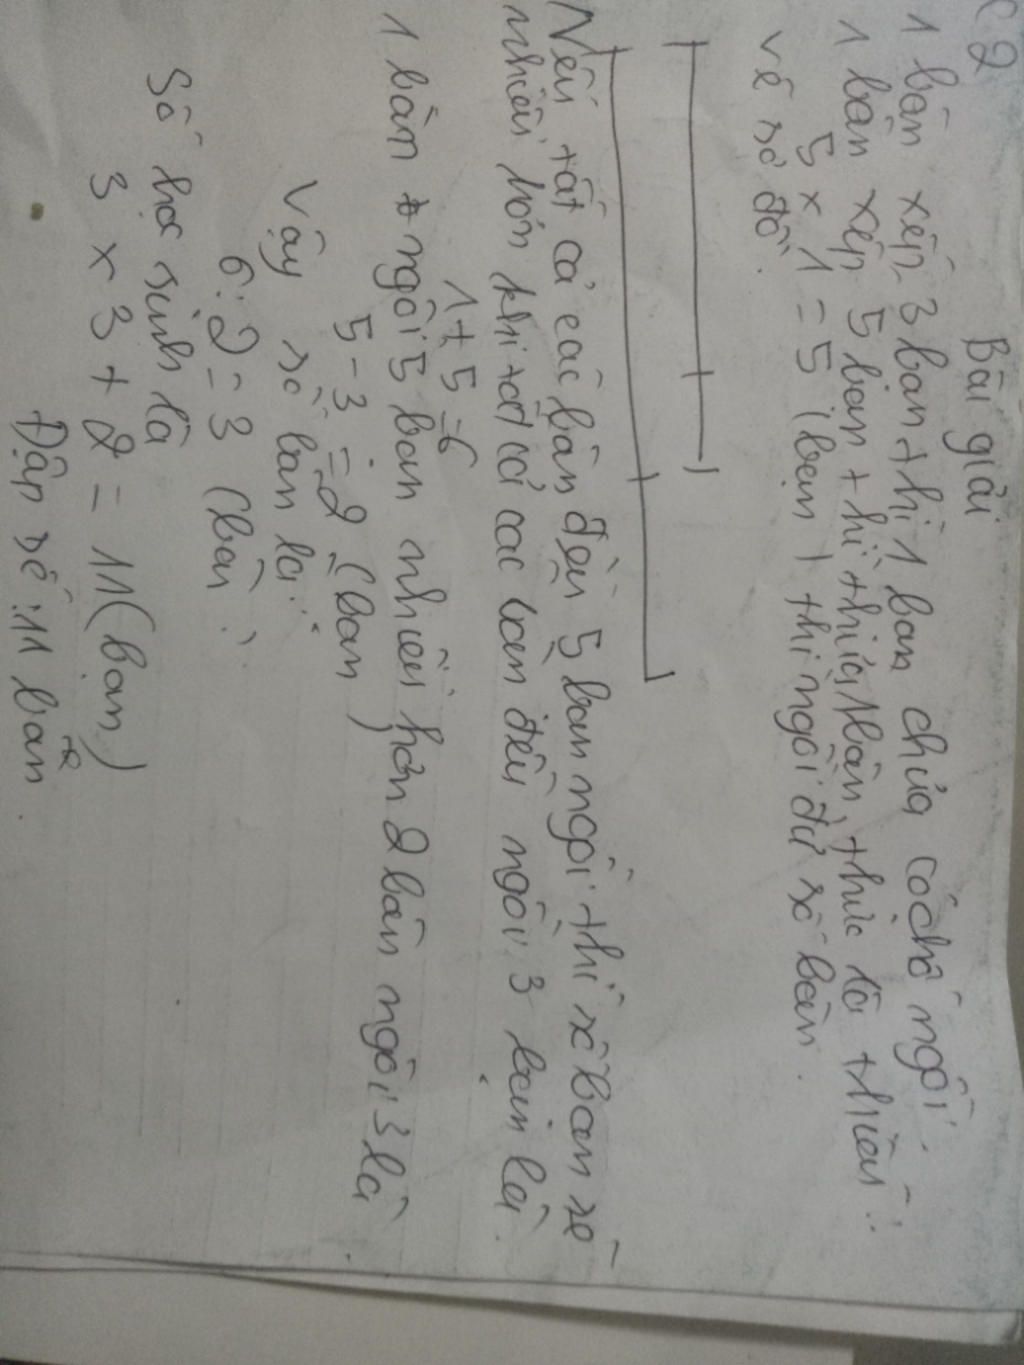 C2
Bài giải
1 bàn xếp 3 bạn thì 1 bạn chưa có chỗ ngồi.
1 bàn xếp 5 bạn thì thừa 1 bàn, thức là thiếu:
5 x 1 = 5 (bạn) thì ngồi đủ số bàn.
vẽ sơ đồ.
Nếu tất cả các bàn đều 5 bạn ngồi thì số bạn sẽ
nhiều hơn khi tất cả các bàn đều ngồi 3 bạn là.
1 + 5 = 6
1 bàn ngồi 5 bạn nhiều hơn 2 bàn ngồi 3 là
5 - 3 = 2 (bạn)
Vậy số bàn là:
6 : 2 = 3 (bàn).
Số học sinh là
3 x 3 + 2 = 11 (bạn)
Đáp số: 11 bạn.